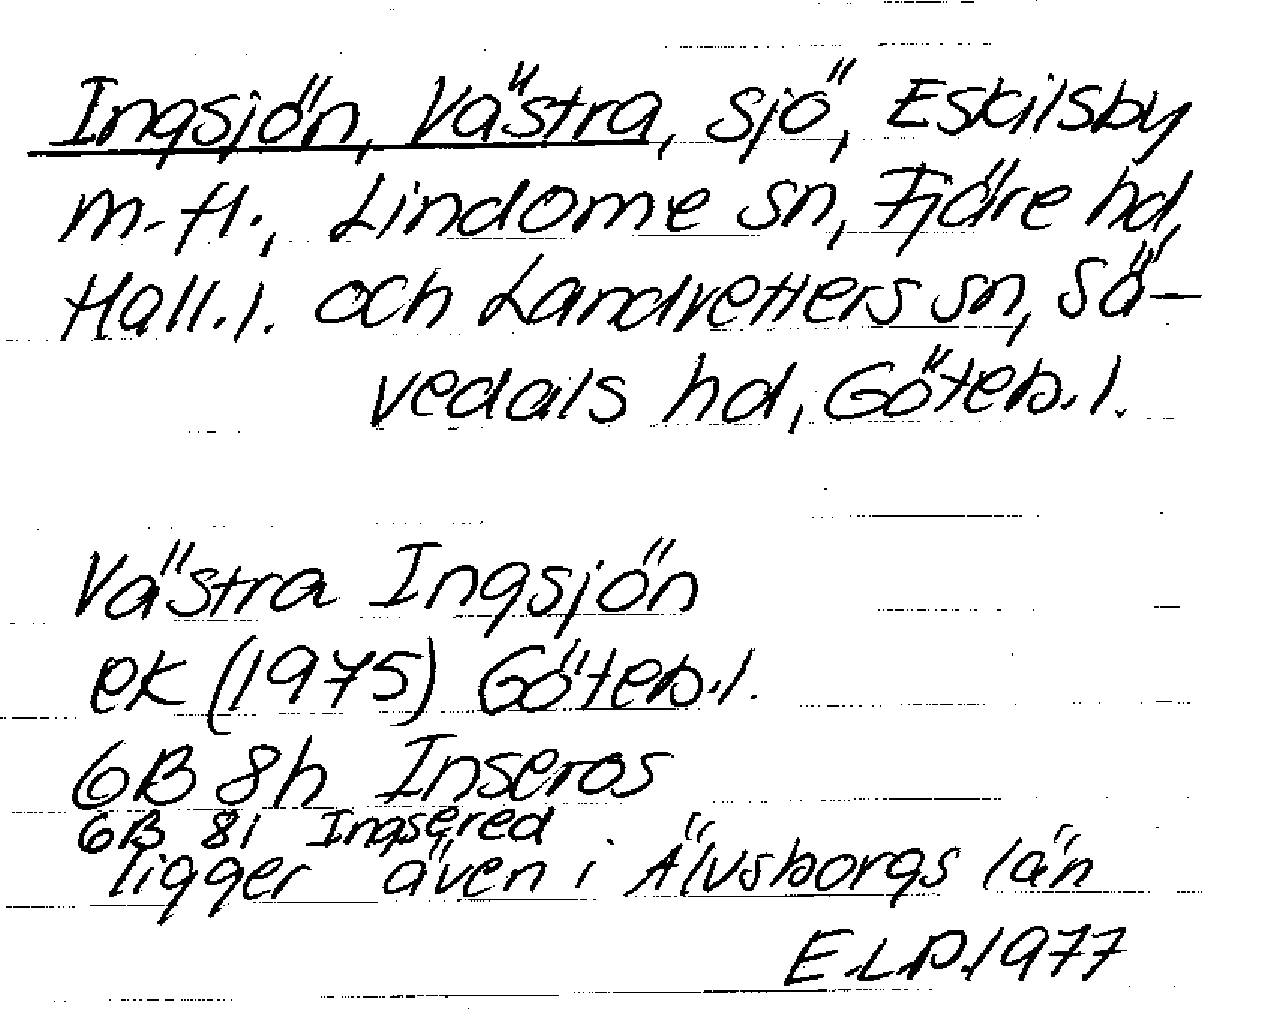 Ingsjön, Västra, sjö, Eskilsby
m.fl., Lindome sn, Fjäre hd,
Hall.l. och Landvetters sn, Sä-
vedals hd, Göteb.l.
Västra Ingsjön
ek (1975) Göteb.l.
6B 8h Inseros
6B 8i Ingsered
ligger även i Älvsborgs län
E.L.P. 1977